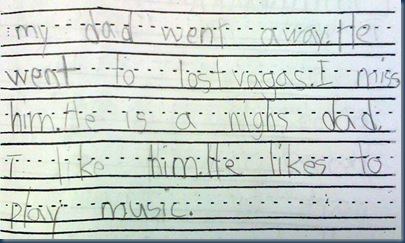 my dad went away.He
went to lost vagas.I miss
him.He is a nighs dad.
I like him.He likes to
play music.